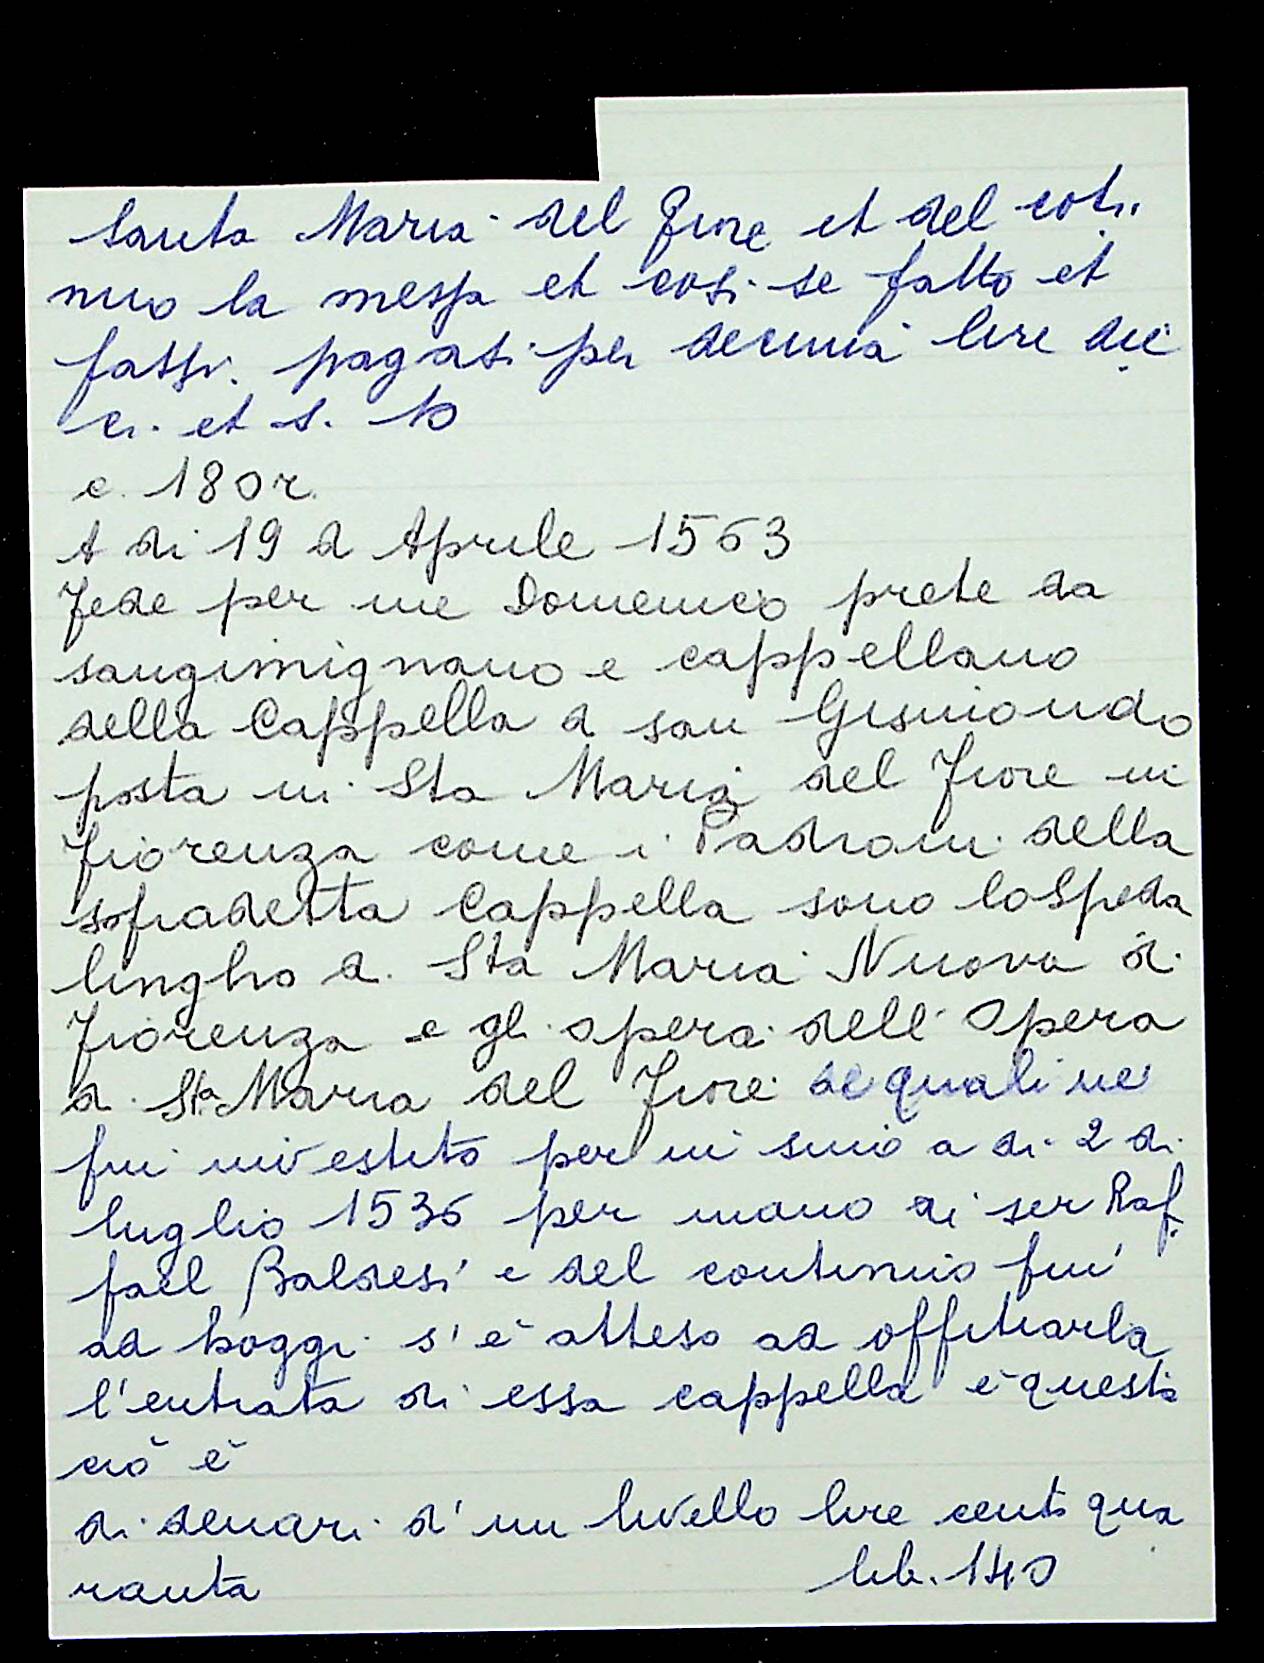 Santa Maria del Fiore et del coti
nuo la messa et cosi se fatto et
fassi. pagasi per decima lire die
ci. et s. 10
c. 180 r.
A di 19 d Aprile 1563
Fede per me Domenico prete da
sangimignano e cappellano
della Cappella d san Gismondo
posta in Sta Maria del Fiore in
Fiorenza come i Padroni della
sopradetta Cappella sono loSpeda
lingho d. Sta Maria Nuova di
Fiorenza e gli operai dell'Opera
d. Sta Maria del Fiore de quali ne
fui investito per in sino a di 2 di
luglio 1536 per mano di ser Raf
fael Baldesi e del continuo fin
ad hoggi s'è atteso ad offitiarla
l'entrata di essa cappella è questa
ciò è
di denari d'un livello lire cento qua
ranta lib. 140